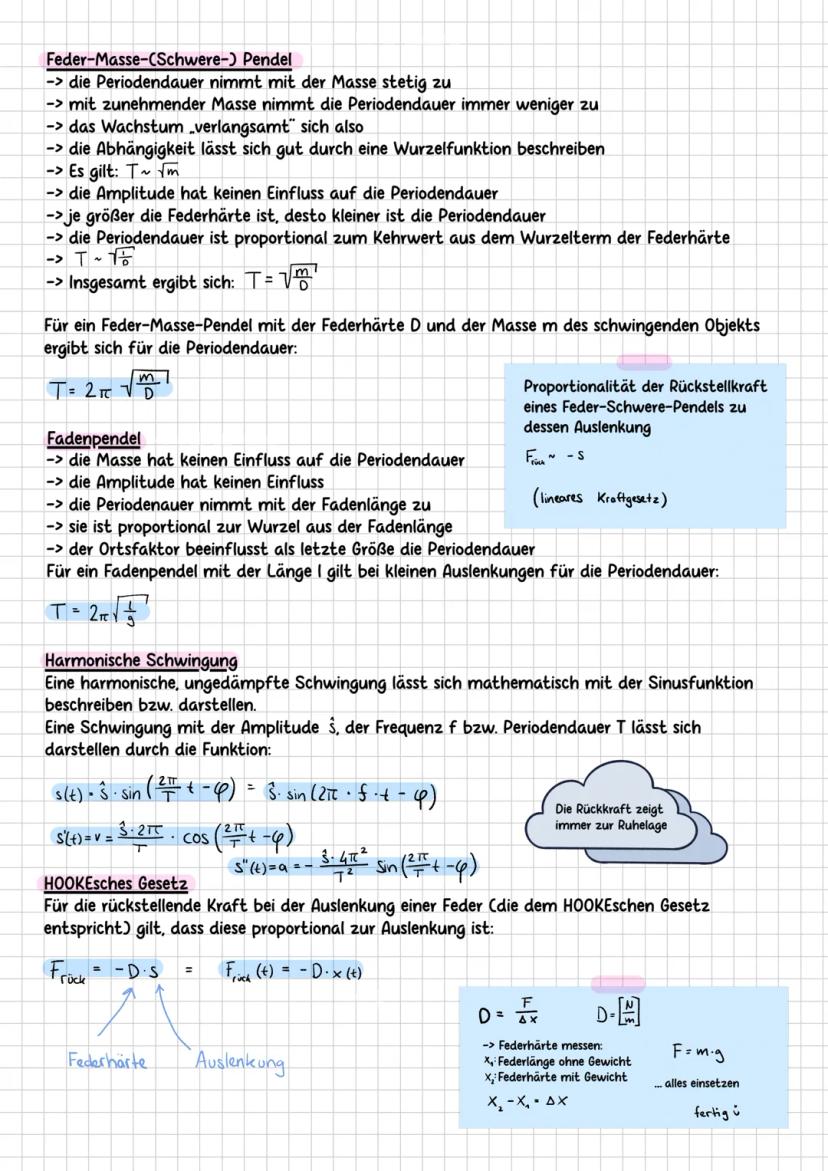 Feder-Masse-(Schwere-) Pendel
-> die Periodendauer nimmt mit der Masse stetig zu
-> mit zunehmender Masse nimmt die Periodendauer immer weniger zu
-> das Wachstum „verlangsamt" sich also
-> die Abhängigkeit lässt sich gut durch eine Wurzelfunktion beschreiben
-> Es gilt: T ~ √m
-> die Amplitude hat keinen Einfluss auf die Periodendauer
->je größer die Federhärte ist, desto kleiner ist die Periodendauer
-> die Periodendauer ist proportional zum Kehrwert aus dem Wurzelterm der Federhärte
-> T ~ √(1/D)
-> Insgesamt ergibt sich: T = √(m/D)
Für ein Feder-Masse-Pendel mit der Federhärte D und der Masse m des schwingenden Objekts
ergibt sich für die Periodendauer:
T = 2π √(m/D)
Proportionalität der Rückstellkraft
eines Feder-Schwere-Pendels zu
dessen Auslenkung
F_rück ~ - s
(lineares Kraftgesetz)
Fadenpendel
-> die Masse hat keinen Einfluss auf die Periodendauer
-> die Amplitude hat keinen Einfluss
-> die Periodenauer nimmt mit der Fadenlänge zu
-> sie ist proportional zur Wurzel aus der Fadenlänge
-> der Ortsfaktor beeinflusst als letzte Größe die Periodendauer
Für ein Fadenpendel mit der Länge l gilt bei kleinen Auslenkungen für die Periodendauer:
T = 2π √(l/g)
Harmonische Schwingung
Eine harmonische, ungedämpfte Schwingung lässt sich mathematisch mit der Sinusfunktion
beschreiben bzw. darstellen.
Eine Schwingung mit der Amplitude ŝ, der Frequenz f bzw. Periodendauer T lässt sich
darstellen durch die Funktion:
s(t) = ŝ · sin (2π/T t - φ) = ŝ · sin (2π · f · t - φ)
s'(t) = v = ŝ·2π/T · cos (2π/T t - φ)
s''(t) = a = - ŝ·4π²/T² sin (2π/T t - φ)
Die Rückkraft zeigt
immer zur Ruhelage
HOOKEsches Gesetz
Für die rückstellende Kraft bei der Auslenkung einer Feder (die dem HOOKEschen Gesetz
entspricht) gilt, dass diese proportional zur Auslenkung ist:
F_rück = -D·s = F_rück (t) = -D·x(t)
Federhärte Auslenkung
D = F/Δx D=[N/m]
-> Federhärte messen:
x₁: Federlänge ohne Gewicht
x₂: Federhärte mit Gewicht
x₂ - x₁ = Δx
F = m·g
... alles einsetzen
fertig ü